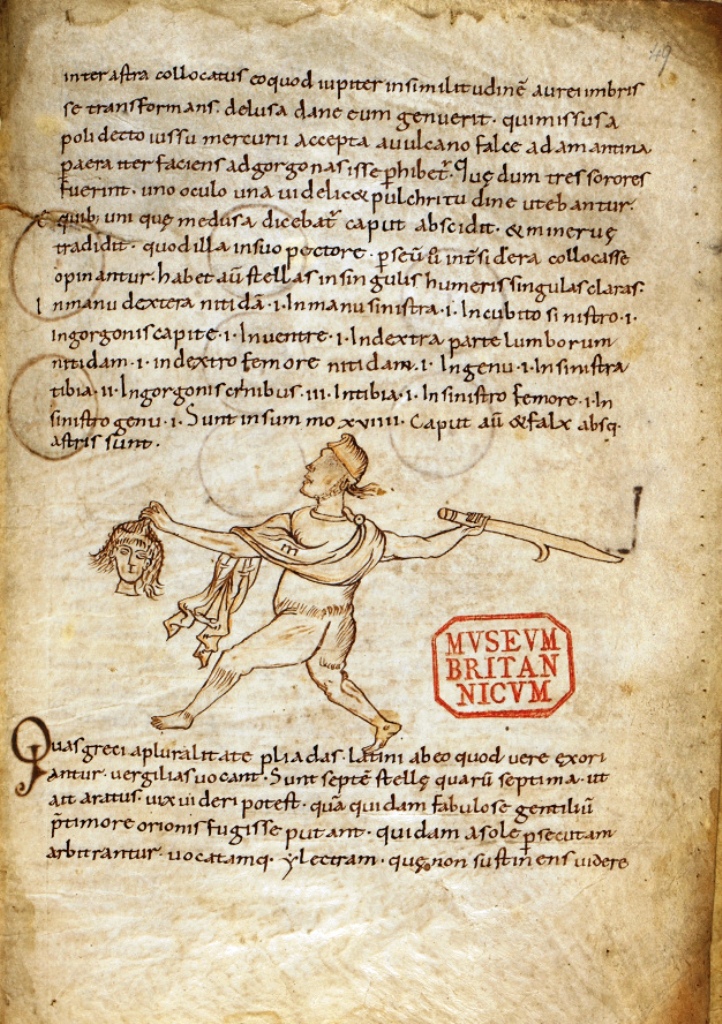 49
inter astra collocatus eo quod iupiter in similitudinē aurei imbris
se transformans· delusa dane eum genuerit· qui missus a
polidecto iussu mercurii accepta a uulcano falce adamantina
p aera iter faciens ad gorgonas isse phibet͛· Quę dum tres sorores
fuerint· uno oculo una uidelic& pulchritudine utebantur·
E quib; uni quę medusa dicebat͛ caput abscidit· & mineruę
tradidit· quod illa in suo pectore· pseū u͛ int͛ sidera collocasse
opinantur· habet aū stellas in singulis humeris singulas claras·
In manu dextera nitidā·i· In manu sinistra·i· In cubito sinistro·i·
in gorgonis capite·i· In uentre·i· In dextra parte lumborum
nitidam·i· in dextro femore nitidam·i· In genu·i· In sinistra
tibia·ii· In gorgonis crinibus·iii· In tibia·i· In sinistro femore·i· In
sinistro genu·i· Sunt in summo xviiii· Caput aū & falx absq·
astris sunt·
MVSEVM
BRITAN
NICVM
Quas greci a pluralitate pliadas· latini ab eo quod uere exori
antur· uergilias uocant· Sunt septē stellę quarū septima· ut
ait aratus· uix uideri potest· quā quidam fabulose gentiliū
p̄ timore orionis fugisse putant· quidam a sole psecutam
arbitrantur· uocatamq· ylectram· quę non sustinens uidere